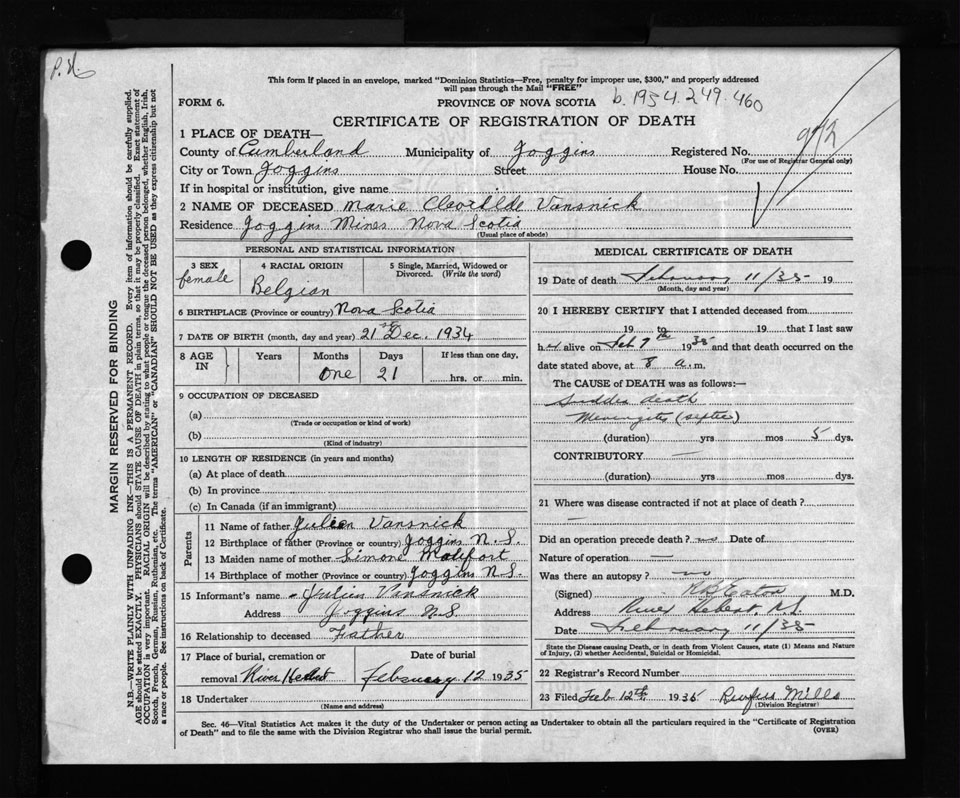 P.N.
This form if placed in an envelope, marked "Dominion Statistics—Free, penalty for improper use, $300," and properly addressed
will pass through the Mail "FREE"
FORM 6.
PROVINCE OF NOVA SCOTIA
b. 1954. 249. 460
CERTIFICATE OF REGISTRATION OF DEATH
1 PLACE OF DEATH—
County of Cumberland Municipality of Joggins Registered No.
(For use of Registrar General only)
City or Town Joggins Street House No.
If in hospital or institution, give name
2 NAME OF DECEASED Marie Vansnick
Residence Joggins Mines Nova Scotia
(Usual place of abode)
PERSONAL AND STATISTICAL INFORMATION
3 SEX
female
4 RACIAL ORIGIN
Belgian
5 Single, Married, Widowed or
Divorced. (Write the word)
6 BIRTHPLACE (Province or country) Nova Scotia
7 DATE OF BIRTH (month, day and year) 21st Dec. 1934
8 AGE
IN
Years
Months
One
Days
21
If less than one day.
hrs. or min.
9 OCCUPATION OF DECEASED
(a)
(Trade or occupation or kind of work)
(b)
(Kind of industry)
10 LENGTH OF RESIDENCE (in years and months)
(a) At place of death
(b) In province
(c) In Canada (if an immigrant)
Parents
11 Name of father Julien Vansnick
12 Birthplace of father (Province or country) Joggins N.S.
13 Maiden name of mother Simone
14 Birthplace of mother (Province or country) Joggins N.S.
15 Informant's name Julien Vansnick
Address Joggins N.S.
16 Relationship to deceased Father
17 Place of burial, cremation or
removal River Hebert
Date of burial
February 12 1935
18 Undertaker
(Name and address)
MEDICAL CERTIFICATE OF DEATH
19 Date of death February 11/35 19
(Month, day and year)
20 I HEREBY CERTIFY that I attended deceased from
19 to 19 that I last saw
h er alive on Feb 7th 1935 and that death occurred on the
date stated above, at 8 a. m.
The CAUSE of DEATH was as follows:—
Sudden death
Meningitis (septic)
(duration) yrs mos 5 dys.
CONTRIBUTORY —
(duration) yrs mos dys.
21 Where was disease contracted if not at place of death?
—
Did an operation precede death? no Date of
Nature of operation —
Was there an autopsy? no
(Signed) Eaton M.D.
Address River Hebert N.S.
Date February 11/35
State the Disease causing Death, or in death from Violent Causes, state (1) Means and Nature
of Injury, (2) whether Accidental, Suicidal or Homicidal.
22 Registrar's Record Number
23 Filed Feb 12th 1935 Rufus Mills
(Division Registrar)
Sec. 46—Vital Statistics Act makes it the duty of the Undertaker or person acting as Undertaker to obtain all the particulars required in the "Certificate of Registration
of Death" and to file the same with the Division Registrar who shall issue the burial permit.
(OVER)
MARGIN RESERVED FOR BINDING
N.B.—WRITE PLAINLY WITH UNFADING INK—THIS IS A PERMANENT RECORD. Every item of information should be carefully supplied.
AGE should be stated EXACTLY. PHYSICIANS should STATE CAUSE OF DEATH in plain terms, so that it may be properly classified. Exact statement of
OCCUPATION is very important. RACIAL ORIGIN will be described by stating to what people or tongue the deceased person belonged, whether English, Irish,
Scotch, French, German, Russian, Ruthenian, etc. The terms "AMERICAN" or "CANADIAN" SHOULD NOT BE USED as they express citizenship but not
a race or people. See instructions on back of Certificate.